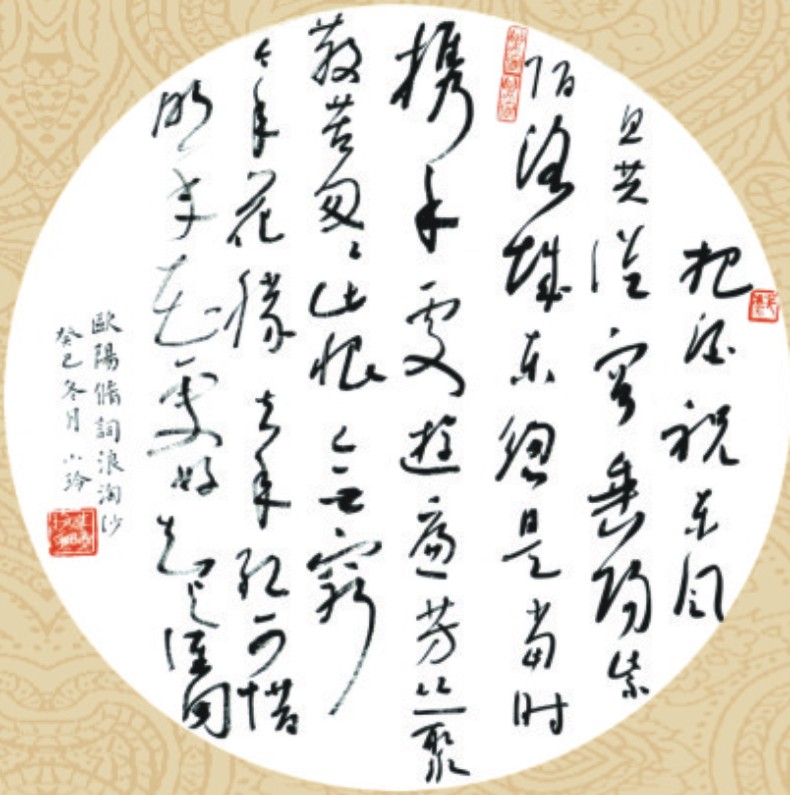 把酒祝东风
且共從容垂杨紫
陌洛城东總是当时
携手處遊遍芳丛聚
散苦匆々此恨無窮
今年花勝去年红可惜
明年花更好知与谁同
歐陽脩詞浪淘沙
癸巳冬月小玲